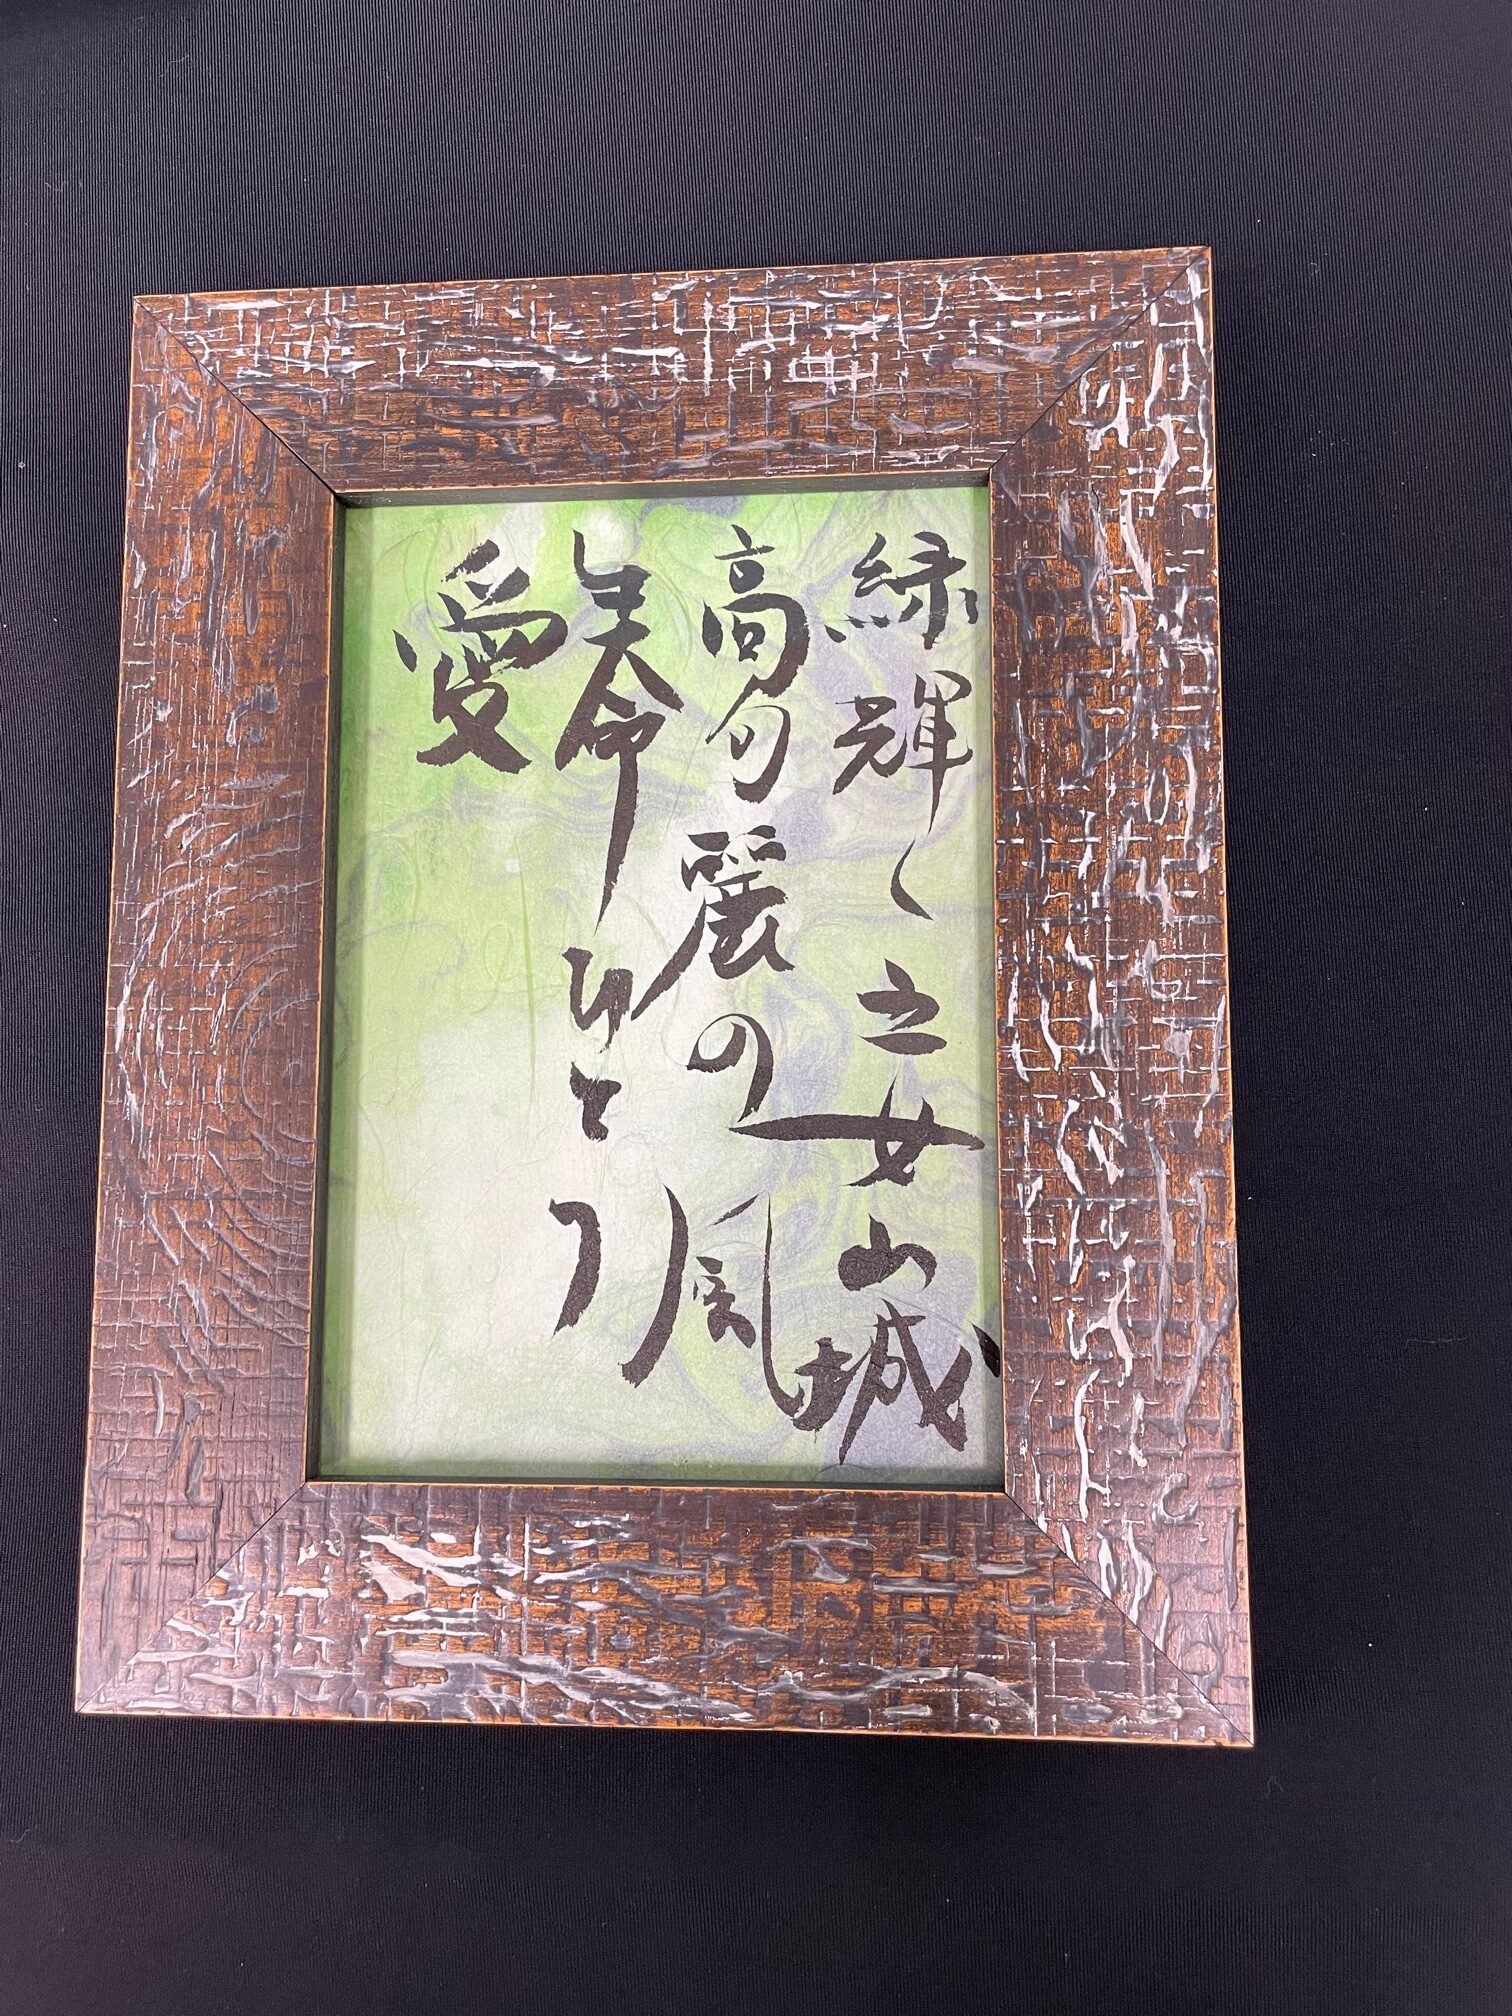 緑輝く五女山城
高句麗の風
生命ひとつ
愛